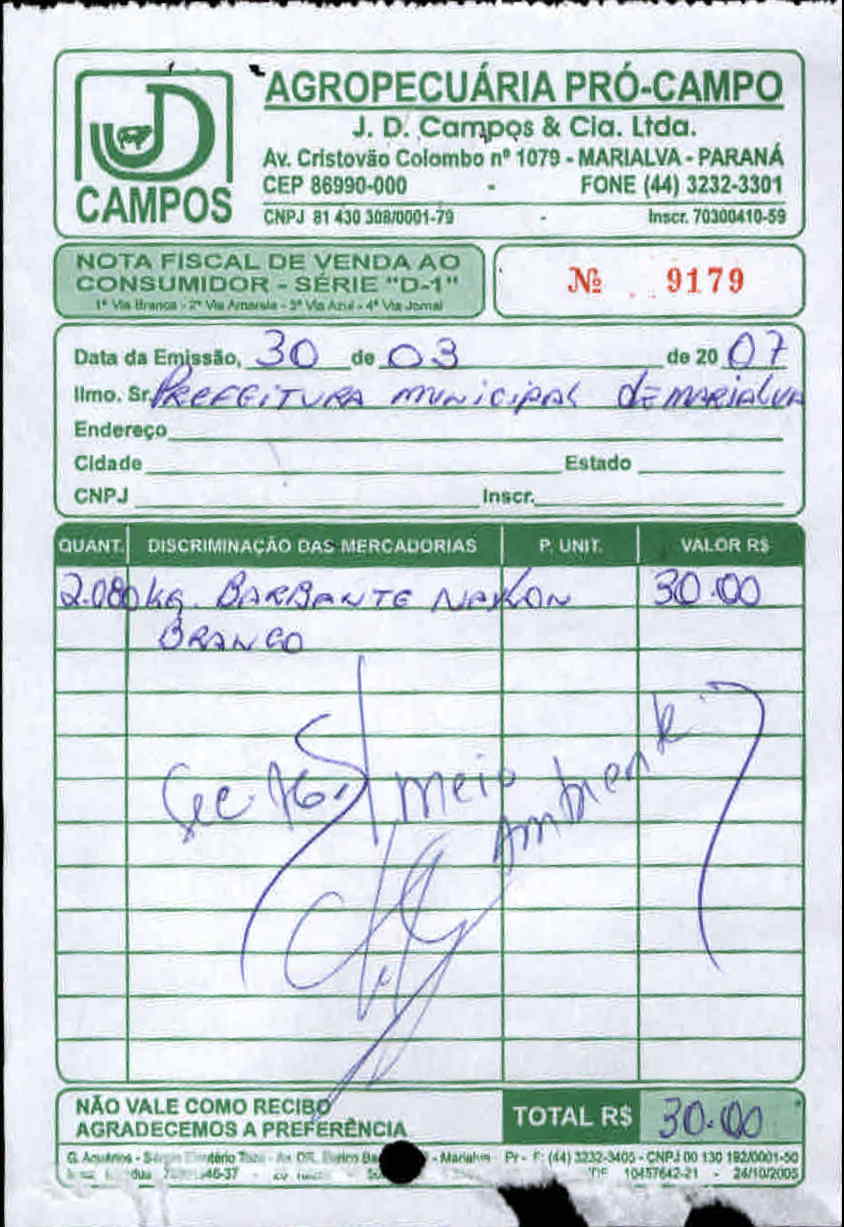 AGROPECUÁRIA PRÓ-CAMPO
J. D. Campos & Cia. Ltda.
Av. Cristovão Colombo nº 1079 - MARIALVA - PARANÁ
CEP 86990-000 - FONE (44) 3232-3301
CNPJ 81 430 308/0001-79 - Inscr. 70300410-59
JD
CAMPOS
NOTA FISCAL DE VENDA AO
CONSUMIDOR - SÉRIE "D-1"
1ª Via Branca - 2ª Via Amarela - 3ª Via Azul - 4ª Via Jornal
Nº 9179
Data da Emissão, 30 de 03 de 20 07
Ilmo. Sr. PREFEITURA MUNICIPAL DE MARIALVA
Endereço
Cidade Estado
CNPJ Inscr.
QUANT. DISCRIMINAÇÃO DAS MERCADORIAS P. UNIT. VALOR R$
2.080 KG. BARBANTE NAYLON 30.00
BRANCO
Sec. meio
Ambiente
NÃO VALE COMO RECIBO
AGRADECEMOS A PREFERÊNCIA
TOTAL R$ 30.00
- Marialva - Pr - F: (44) 3232-3405 - CNPJ 00 130 192/0001-50
10457642-21 - 24/10/2005